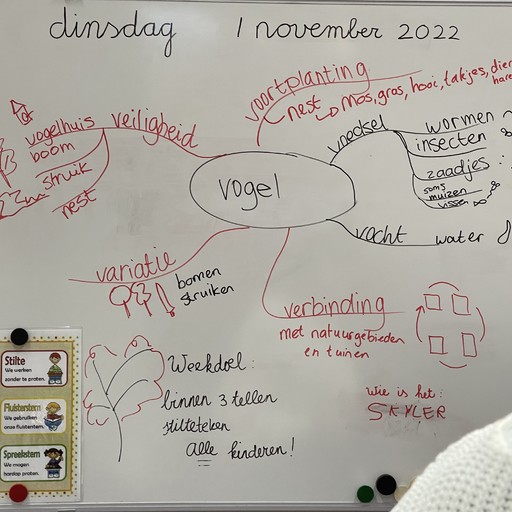 dinsdag 1 november 2022
voortplanting
nest mos, gras, hooi, takjes, dier
hare
voedsel
wormen
insecten
zaadjes
soms
muizen
vissen
vocht water
vogelhuis veiligheid
boom
struik
nest
vogel
variatie
bomen
struiken
verbinding
met natuurgebieden
en tuinen
Weekdoel:
binnen 3 tellen
stilteteken
alle kinderen!
wie is het:
SKYLER
Stilte
We werken
zonder te praten.
Fluisterstem
We gebruiken
onze fluisterstem.
Spreekstem
We mogen
hardop praten.